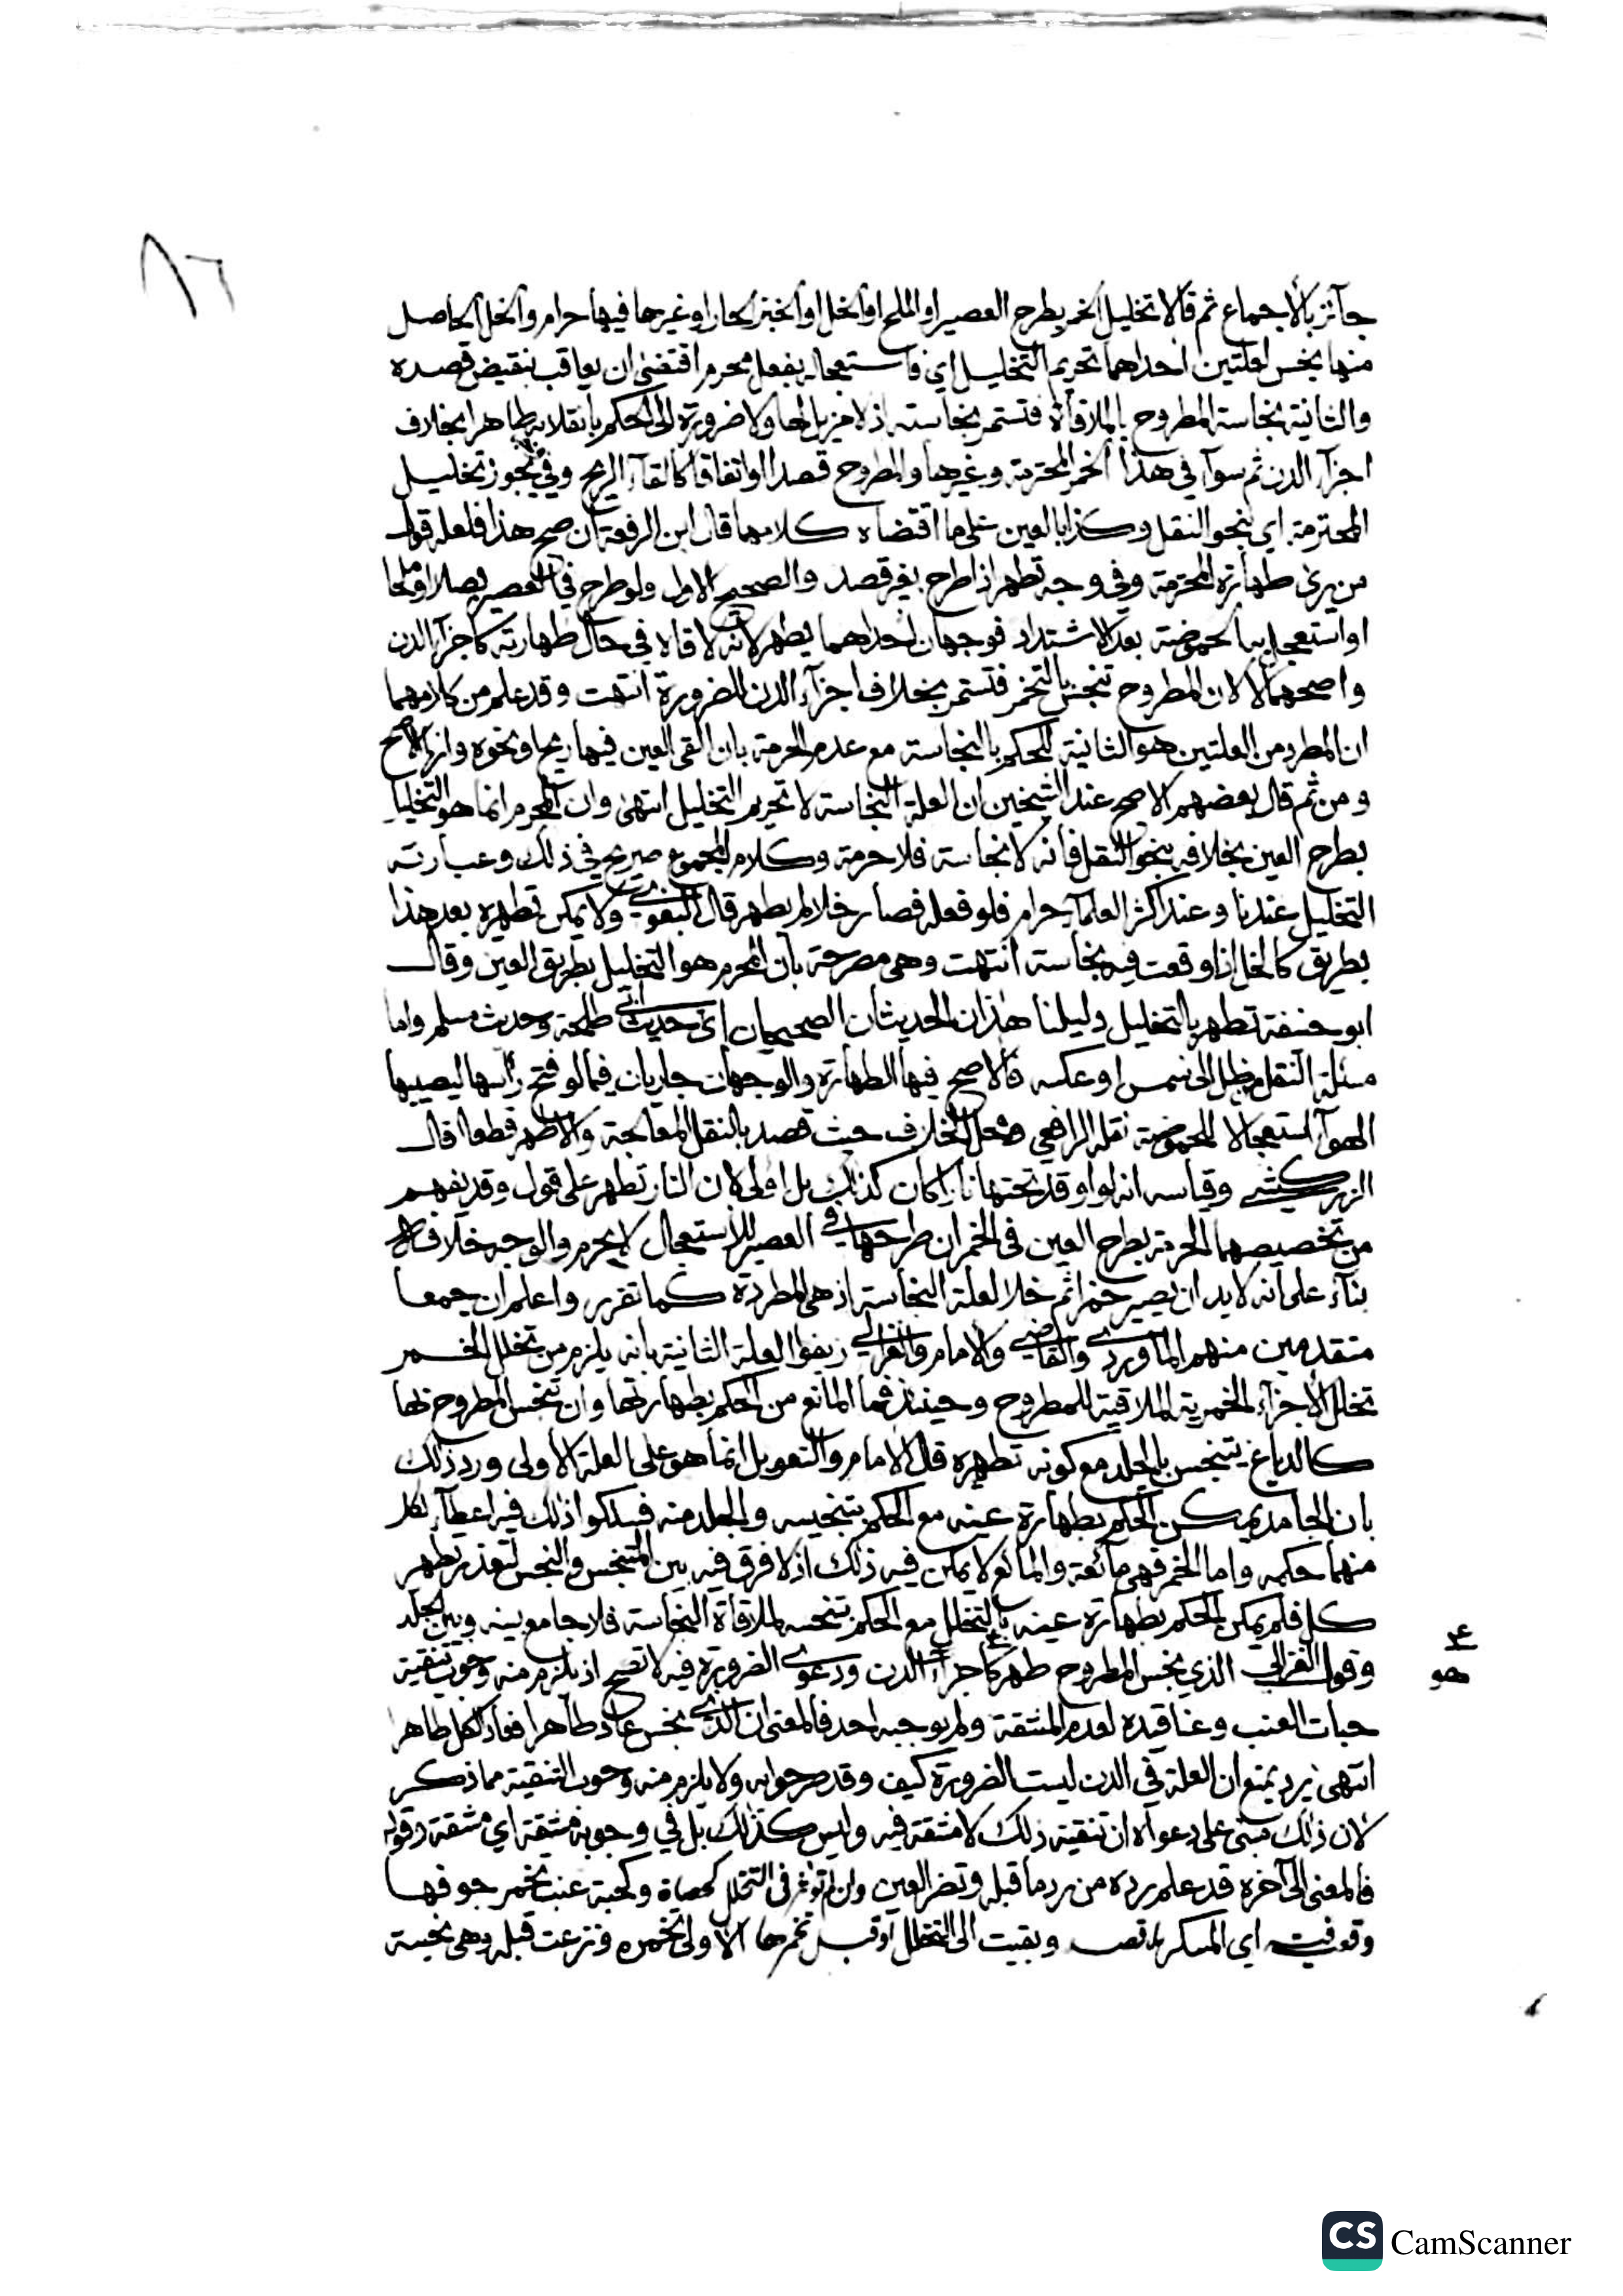 ٨٦
جآئز بالاجماع ثم قالا تخليل الخمر بطرح العصير او الملح او الخل او الخبز الحار او غيرها فيها حرام والخل الحاصل
منها نجس لعلتين احداهما تحريم التخليل اي فاستعجاله بفعل محرم اقتضى ان يعاقب بنقيض قصده
والثانية نجاسة المطروح بالملاقاة فتستمر نجاسته اذ لا مزيل لها ولا ضرورة الى الحكم بانقلابه طاهرا بخلاف
اجزآء الدن ثم سوآء في هذا الخمر المحترمة وغيرها والمطروح قصدا او اتفاقا كالقآء الريح وفي يجوز تخليل
المحترمة اي بنحو النقل وكذا بالعين على ما اقتضاه كلامهما قال ابن الرفعة ان صح هذا فلعله قول
من يرى طهارة المحترمة وفي وجه تطهر اذا طرح بغير قصد والصحيح الاول ولو طرح في العصير بصلا او ملحا
او استعجل به الحموضة بعد الاشتداد فوجهان احداهما يطهر لانه لاقاه في حال طهارته كاجزآء الدن
واصحهما لا لان المطروح تنجس بالتخمر فتستمر بخلاف اجزآء الدن للضرورة انتهت وقد علم من كلامهما
ان المطرد من العلتين هو الثانية للحكم بالنجاسة مع عدم الحرمة بان القى العين فيها ريح او نحوه وانها الاصح
ومن ثم قال بعضهم الاصح عند الشيخين ان العلة النجاسة لا تحريم التخليل انتهى وان المحرم انما هو التخليل
بطرح العين بخلافه بنحو النقل فانه لا نجاسة فلا حرمة وكلام المجموع صريح في ذلك وعبارته
التخليل عندنا وعند اكثر العلمآء حرام فلو فعله فصار خلا لم يطهر قال البغوي ولا يمكن تطهيره بعد هذا
بطريق كالخل اذا وقعت فيه نجاسة انتهت وهي مصرحة بان المحرم هو التخليل بطريق العين وقال
ابو حنيفة تطهر بالتخليل دليلنا هذان الحديثان الصحيحان اي حديث ابي طلحة وحديث مسلم واما
مسئلة النقل من ظل الى شمس او عكسه فالاصح فيها الطهارة والوجهان جاريان فيما لو فتح رأسها ليصيبها
الهوآء استعجالا للحموضة نقله الرافعي ومحل الخلاف حيث قصد بالنقل المعالجة والا طهر قطعا قال
الزركشي وقياسه انه لو اوقد تحتها نارا كان كذلك بل اولى لان النار تطهر على قول وقد يفهم
من تخصيصهما الحرمة بطرح العين في الخمر ان طرحها في العصير للاستعجال لا يحرم والوجه خلافه
بنآء على انه لا بد ان يصير خمرا ثم خلا لعلة النجاسة اذ هي المطردة كما تقرر واعلم ان جمعا
متقدمين منهم الماوردي والقاضي والامام والغزالي زيفوا العلة الثانية بانه يلزم من تخلل الخمر
تخلل الاجزآء الخمرية الملاقية للمطروح وحينئذ فما المانع من الحكم بطهارتها وان تنجس المطروح بها
كالدباغ يتنجس بالجلد مع كونه تطهره قال الامام والتعويل انما هو على العلة الاولى ورد ذلك
بان الجامد يمكن الحكم بطهارة عينه مع الحكم بتنجيسه والجلد منه فسلكوا ذلك فيه اعطآء لكل
منهما حكمه واما الخمر فهي مائعة والمائع لا يمكن فيه ذلك اذ لا فرق فيه بين المتنجس والنجس لتعذر تطهر
كل فلم يمكن الحكم بطهارة عينه بالتخلل مع الحكم بتنجسه لملاقاة النجاسة فلا جامع بينه وبين الجلد
وقول الغزالي الذي نجس المطروح طهر كاجزآء الدن ودعوى الضرورة فيه لا تصح اذ يلزم منه وجوب تنقية
هو
حبات العنب وعناقيده لعدم المشقة ولم يوجبه احد فالمعنى ان الذي نجس عاد طاهرا فعاد الكل طاهرا
انتهى يرد بمنع ان العلة في الدن ليست الضرورة كيف وقد مر جوابه ولا يلزم منه وجوب التنقية مما ذكر
لان ذلك مبني على دعواه ان تنقية ذلك لا مشقة فيه وليس كذلك بل في وجوبه مشقة اي مشقة وقوله
فالمعنى الى آخره قد علم رده من رد ما قبله وتضر العين وان لم تؤثر في التخلل كحصاة وكحبة عنب تخمر جوفها
وقعت فيه اي المسكر بلا قصد وبقيت الى التخلل او قبل تخمرها الاولى تخمره ونزعت قبله وهي نجسة
CS CamScanner